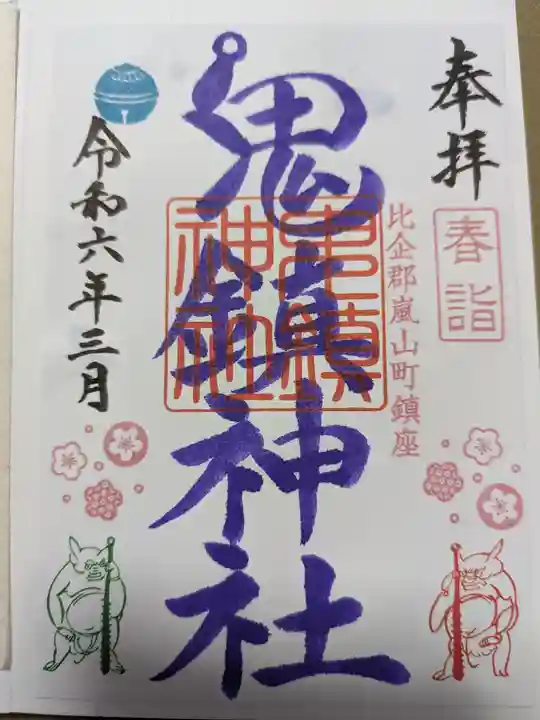 奉拝
春詣
比企郡嵐山町鎮座
鬼鎮神社
鬼鎮
神社
令和六年三月